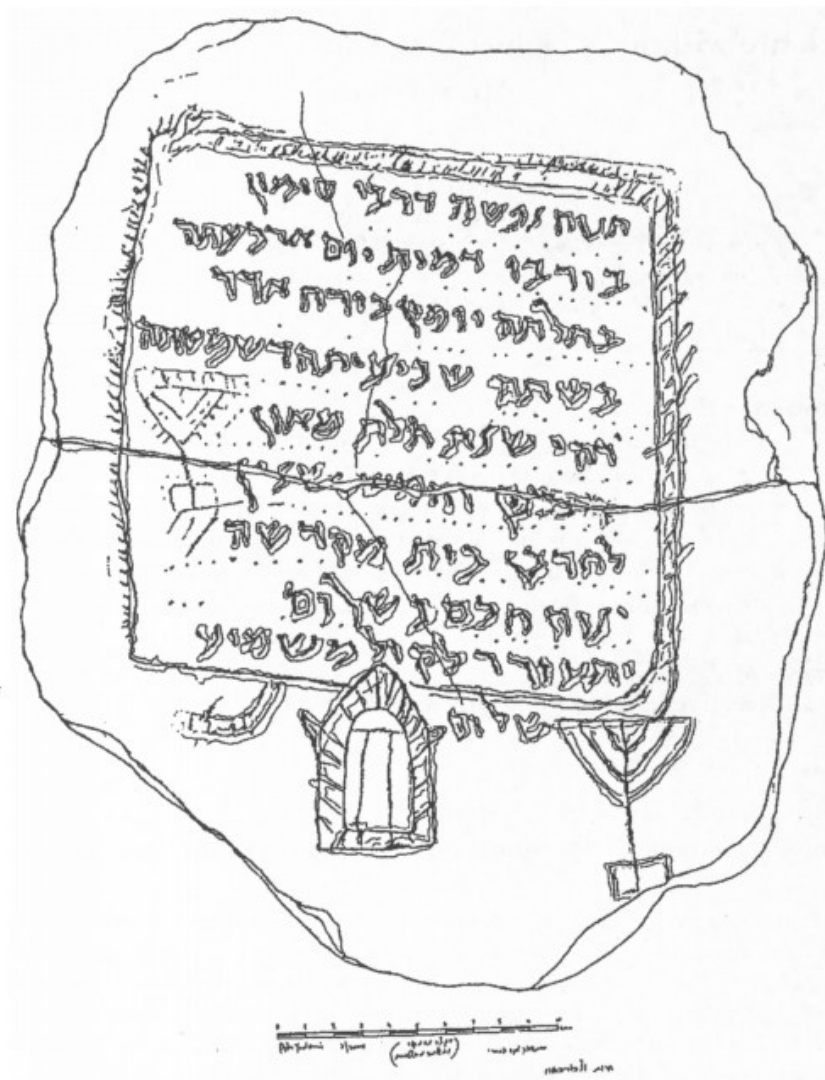 תנוח נפשה דרבי שימון
בורבי דמית יום ארבעתה
בתלתה יומין בירח אדר
בשתה שביעיתה דשמטתה
דהי שנת תלת מאון
שנין
לחרבן בית מקדשה
ינוח חלם בשלום
יתעורר לקול משמיע
שלום